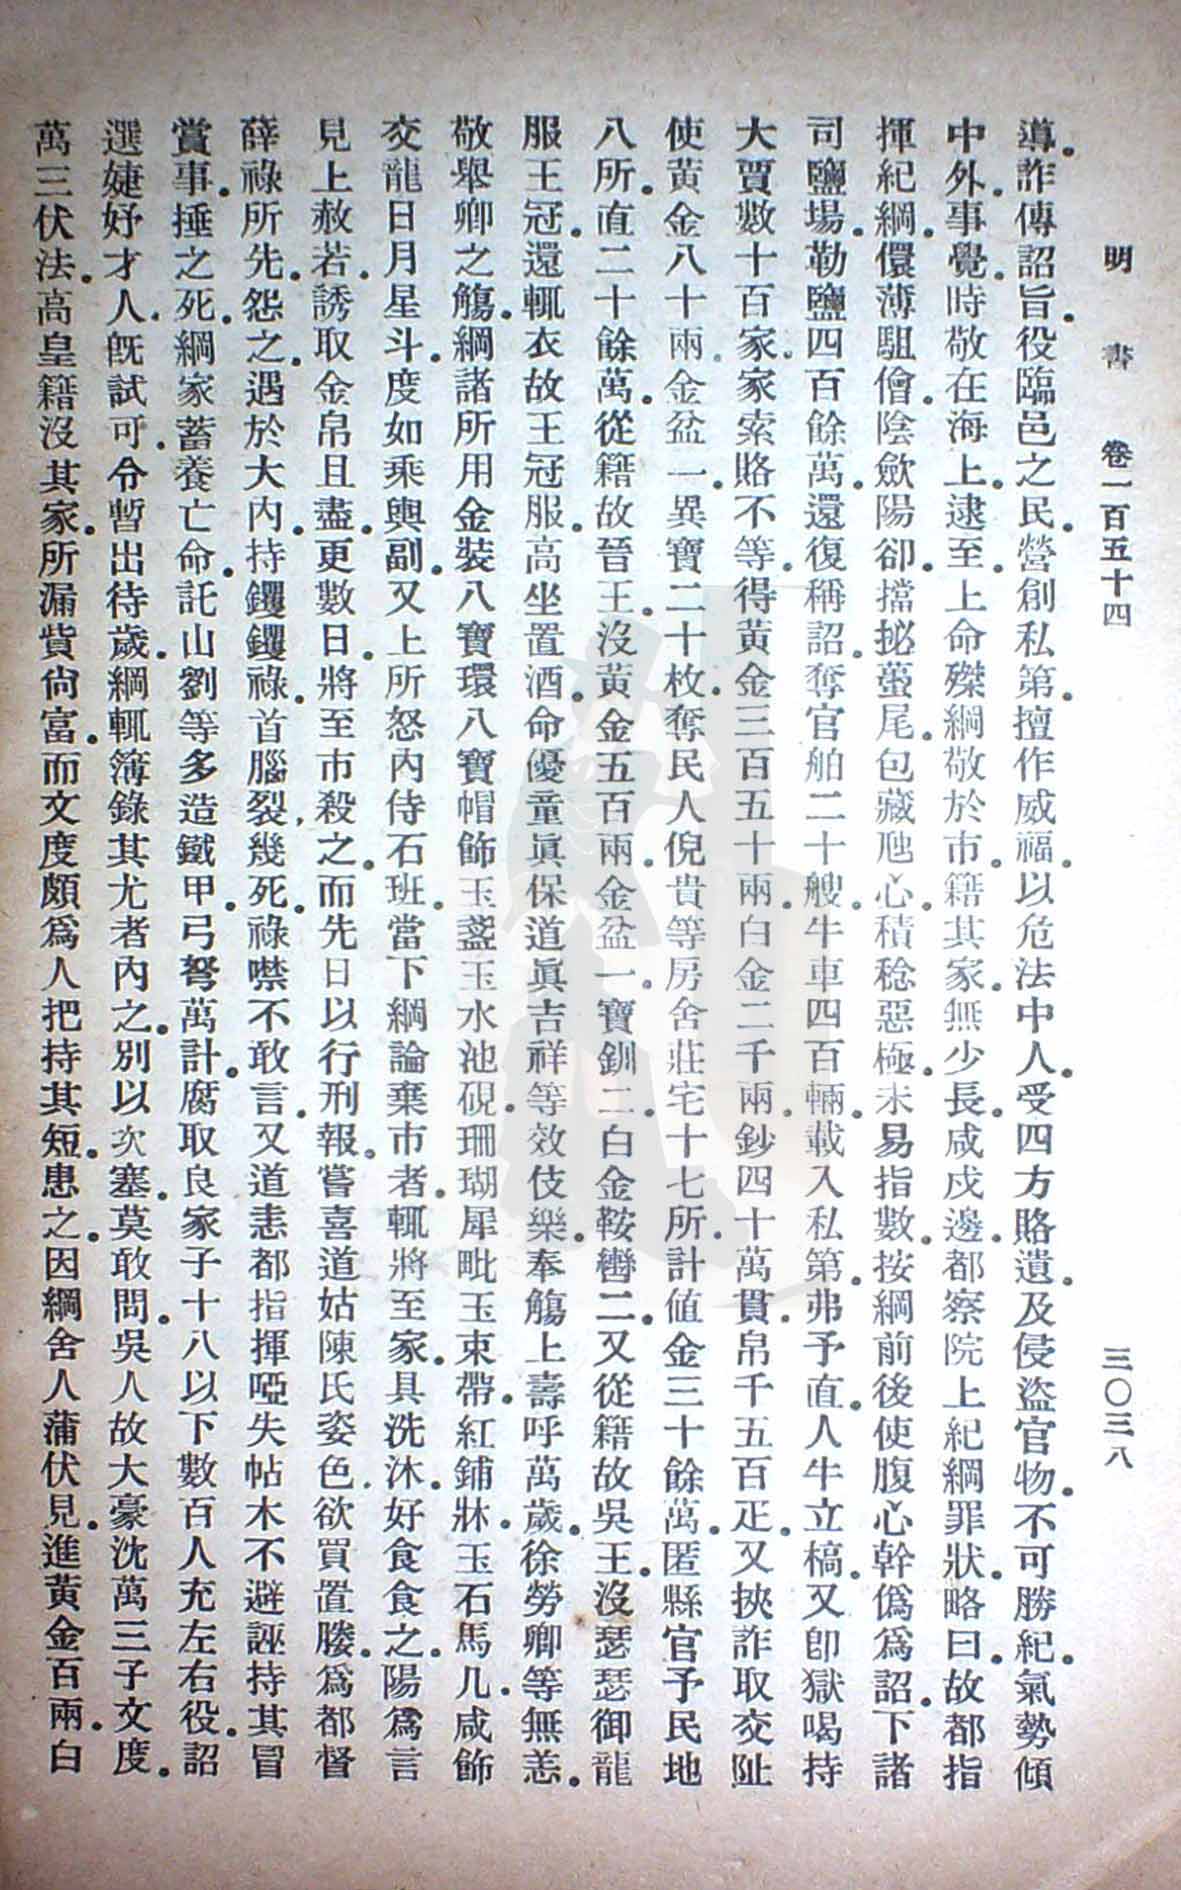 明書 卷一百五十四 三〇三八
導。詐傳詔旨。役臨邑之民。營創私第。擅作威福。以危法中人。受四方賂遺。及侵盜官物。不可勝紀。氣勢傾
中外。事覺。時敬在海上。逮至。上命磔綱敬於市。籍其家。無少長。咸戍邊。都察院上紀綱罪狀。略曰。故都指
揮紀綱。儇薄駔儈。陰歛陽卻。擋拯蠆尾。包藏虺心。積稔惡極。未易指數。按綱前後使腹心幹僞爲詔。下諸
司鹽場。勒鹽四百餘萬。還復稱詔。奪官舶二十艘。牛車四百輛。載入私第。弗予直。人牛立槁。又卽獄喝持
大賈數十百家。家索賂不等。得黃金三百五十兩。白金二千兩。鈔四十萬貫。帛千五百疋。又挾詐取交阯
使黃金八十兩。金盆一。異寶二十枚。奪民人倪貴等房舍莊宅十七所。計値金三十餘萬。匿縣官予民地
八所。直二十餘萬。從籍故晉王。沒黃金五百兩。金盆一。寶釧二。白金鞍轡二。又從籍故吳王。沒瑟瑟御龍
服王冠。還輒衣故王冠服。高坐置酒。命優童眞保道眞吉祥等效伎樂。奉觴上壽。呼萬歲。徐勞卿等無恙。
敬舉卿之觴。綱諸所用金裝八寶環八寶帽飾玉盞玉水池硯。珊瑚犀毗玉束帶。紅鋪牀。玉石馬几。咸飾
交龍日月星斗。度如乘輿副。又上所怒內侍石班。當下綱論棄市者。輒將至家。具洗沐。好食食之。陽爲言
見上赦若。誘取金帛且盡。更數日。將至市殺之。而先日以行刑報。嘗喜道姑陳氏姿色。欲買置媵。爲都督
薛祿所先。怨之。遇於大內。持钁钁祿。首腦裂。幾死。祿噤不敢言。又道恚都指揮啞失帖木不避。誣持其冒
賞事。捶之死。綱家蓄養亡命。託山劉等多造鐵甲。弓弩萬計。腐取良家子十八以下數百人充左右役。詔
選婕妤才人。旣試可。令暫出待歲。綱輒簿錄其尤者內之。別以次塞。莫敢問。吳人故大豪沈萬三子文度。
萬三伏法。高皇籍沒其家。所漏貲尙富。而文度頗爲人把持其短。患之。因綱舍人蒲伏見。進黃金百兩。白